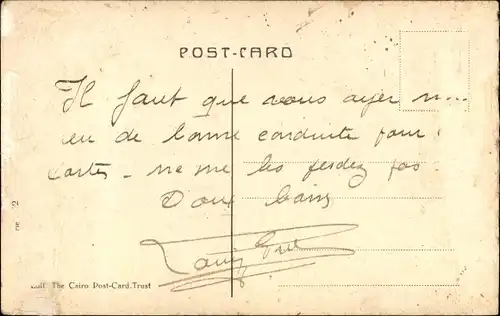 POST-CARD
Il faut que vous ayez
eu de bonne conduite pour
cartes - ne me les perdez pas
Doux
The Cairo Post-Card.Trust